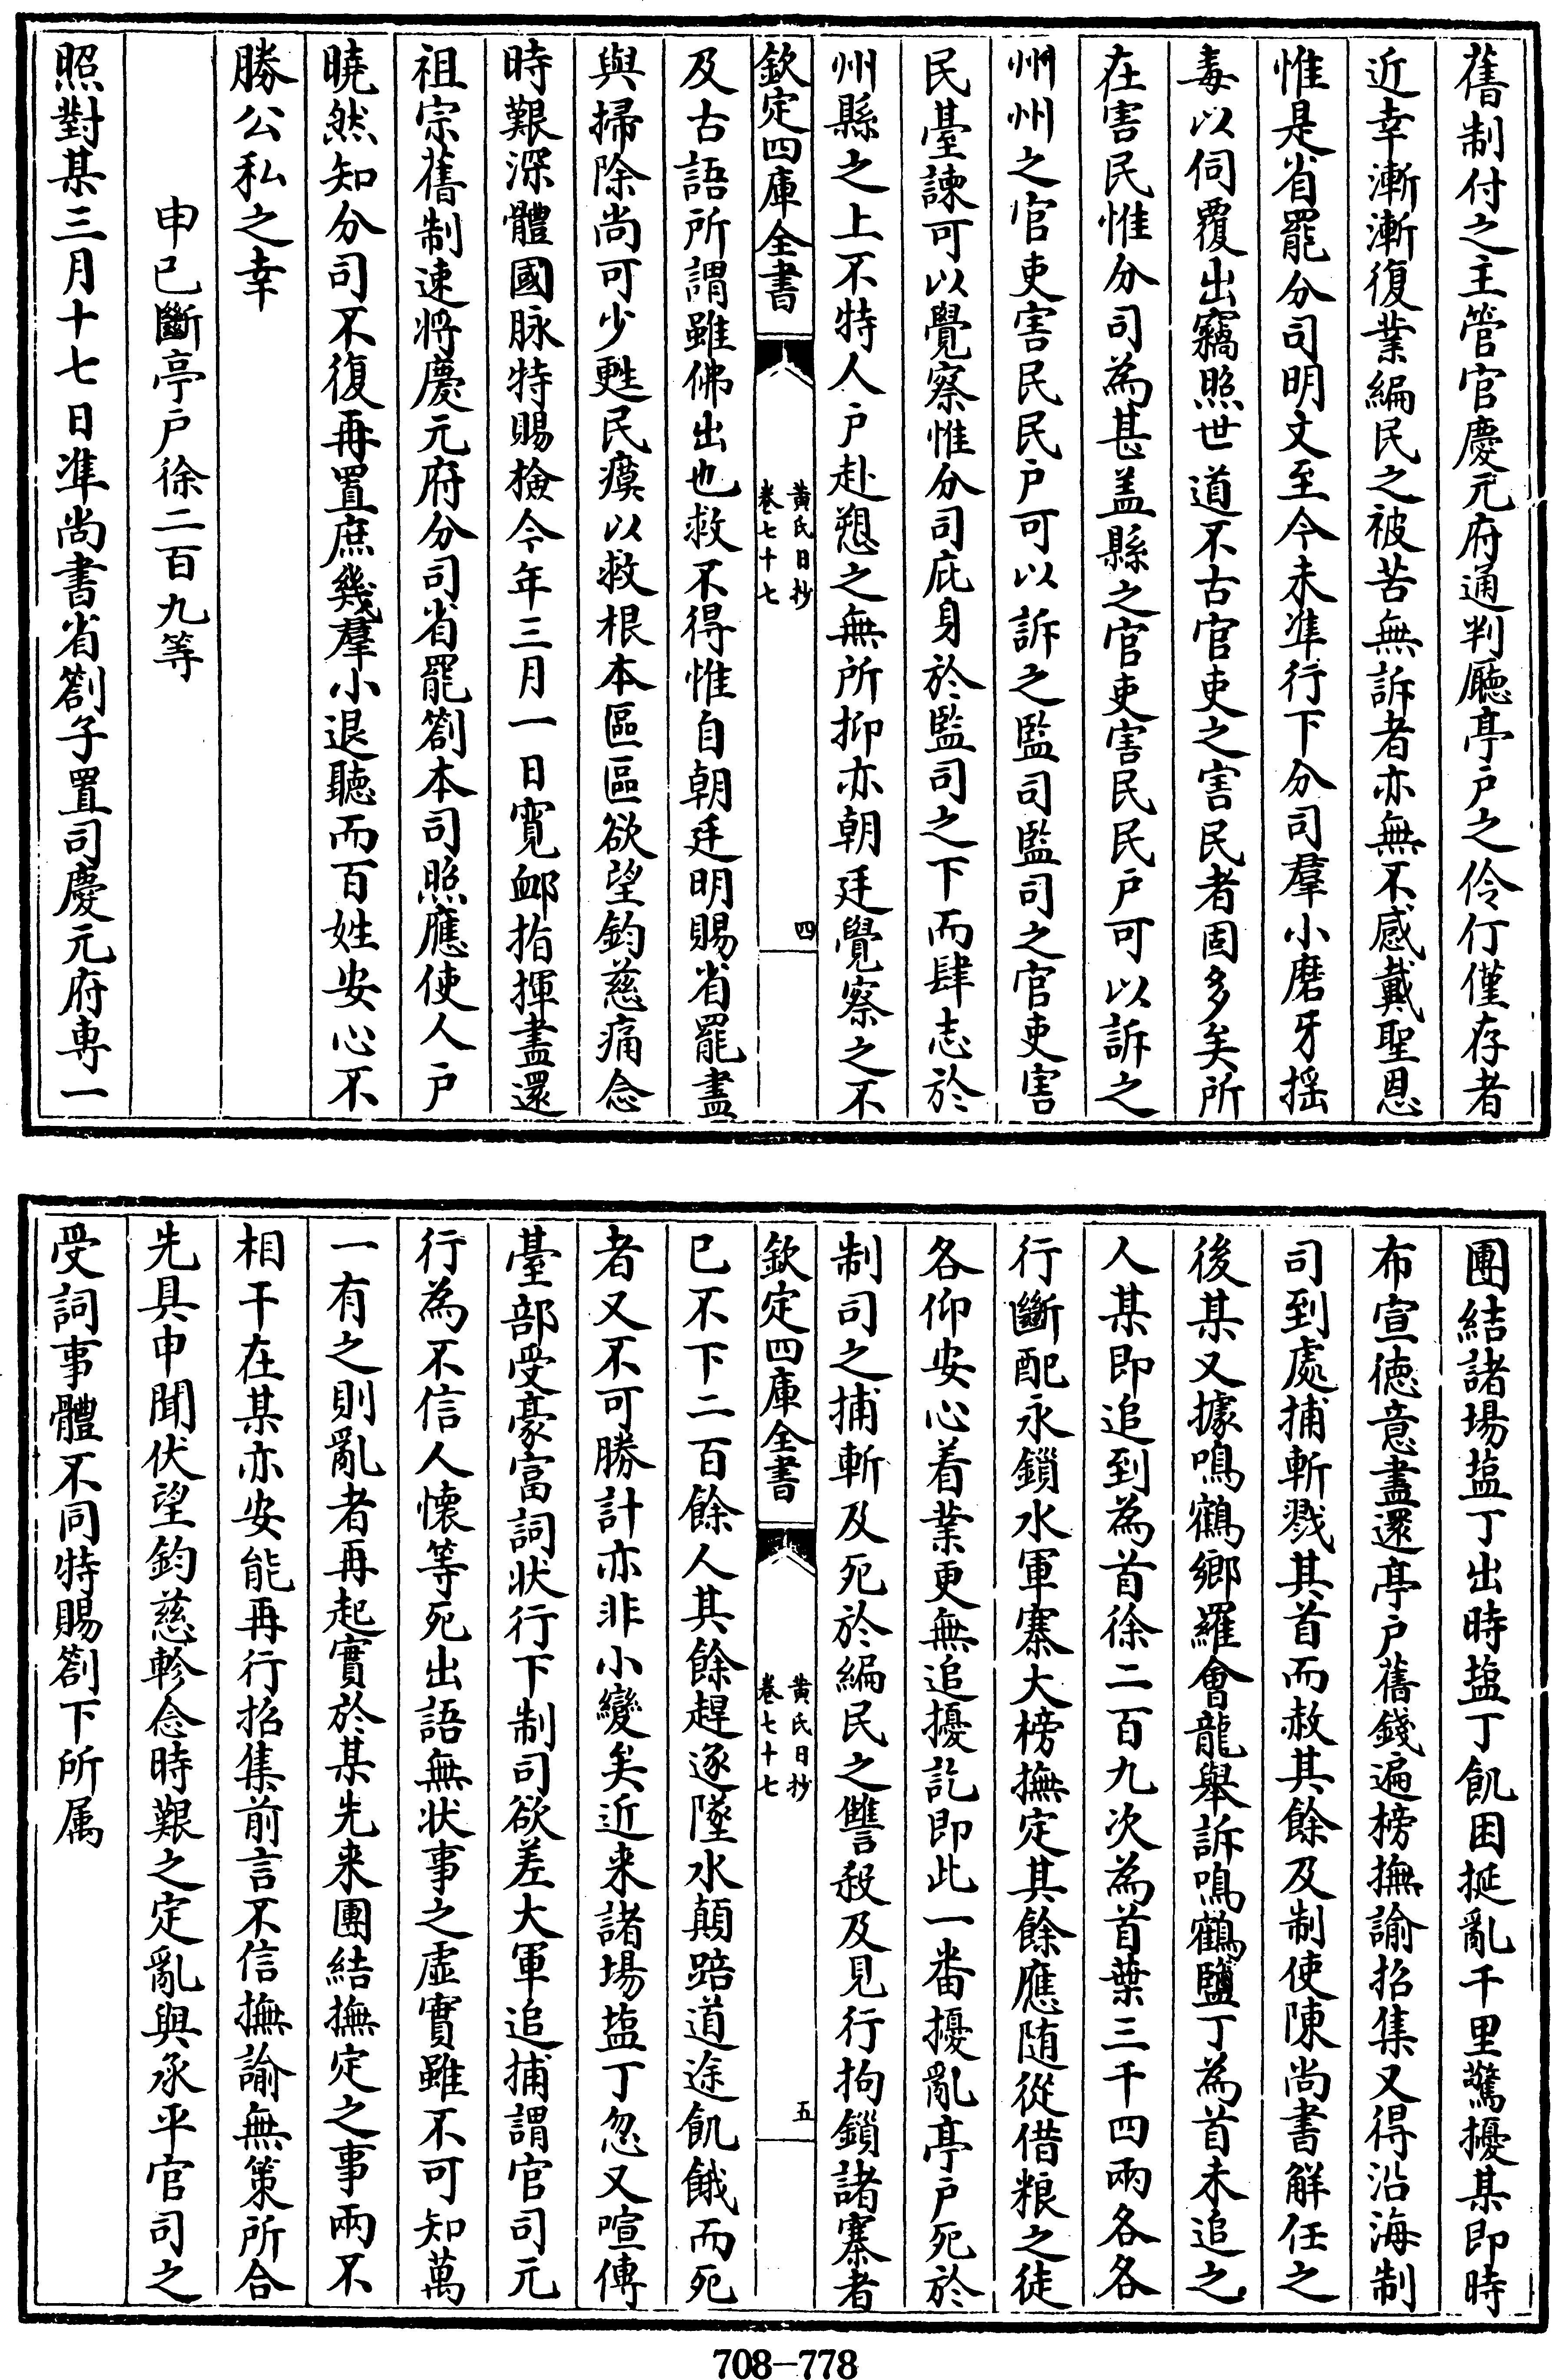 舊制付之主管官慶元府通判廳亭户之伶仃僅存者
近幸漸漸復業編民之被苦無訴者亦無不感戴聖恩
惟是省罷分司明文至今未準行下分司羣小磨牙揺
毒以伺覆出竊照世道不古官吏之害民者固多矣所
在害民惟分司為甚盖縣之官吏害民民户可以訴之
州州之官吏害民民户可以訴之監司監司之官吏害
民臺諫可以覺察惟分司庇身於監司之下而肆志於
州縣之上不特人户赴愬之無所抑亦朝廷覺察之不
欽定四庫全書
黄氏日抄
卷七十七
四
及古語所謂雖佛出也救不得惟自朝廷明賜省罷盡
與掃除尚可少甦民瘼以救根本區區欲望鈞慈痛念
時艱深體國脉特賜檢今年三月一日寛䘏指揮盡還
祖宗舊制速將慶元府分司省罷劄本司照應使人户
曉然知分司不復再置庶幾羣小退聽而百姓安心不
勝公私之幸
申已斷亭户徐二百九等
照對某三月十七日準尚書省劄子置司慶元府専一
團結諸場塩丁出時塩丁飢困挻亂千里驚擾某即時
布宣徳意盡還亭户舊錢遍榜撫諭招集又得沿海制
司到處捕斬戮其首而赦其餘及制使陳尚書解任之
後某又據鳴鶴鄉羅會龍舉訴鳴鶴鹽丁為首未追之
人某即追到為首徐二百九次為首葉三千四兩各各
行斷配永鎖水軍寨大榜撫定其餘應随從借粮之徒
各仰安心着業更無追擾訖即此一番擾亂亭户死於
制司之捕斬及死於編民之讐殺及見行拘鎖諸寨者
欽定四庫全書
黄氏日抄
卷七十七
五
已不下二百餘人其餘趕逐墜水顛踣道途飢餓而死
者又不可勝計亦非小變矣近来諸場塩丁忽又喧傳
臺部受豪富詞状行下制司欲差大軍追捕謂官司元
行為不信人懐等死出語無状事之虚實雖不可知萬
一有之則亂者再起實於某先来團結撫定之事兩不
相干在某亦安能再行招集前言不信撫諭無策所合
先具申聞伏望鈞慈軫念時艱之定亂與承平官司之
受詞事體不同特賜劄下所属
708-778